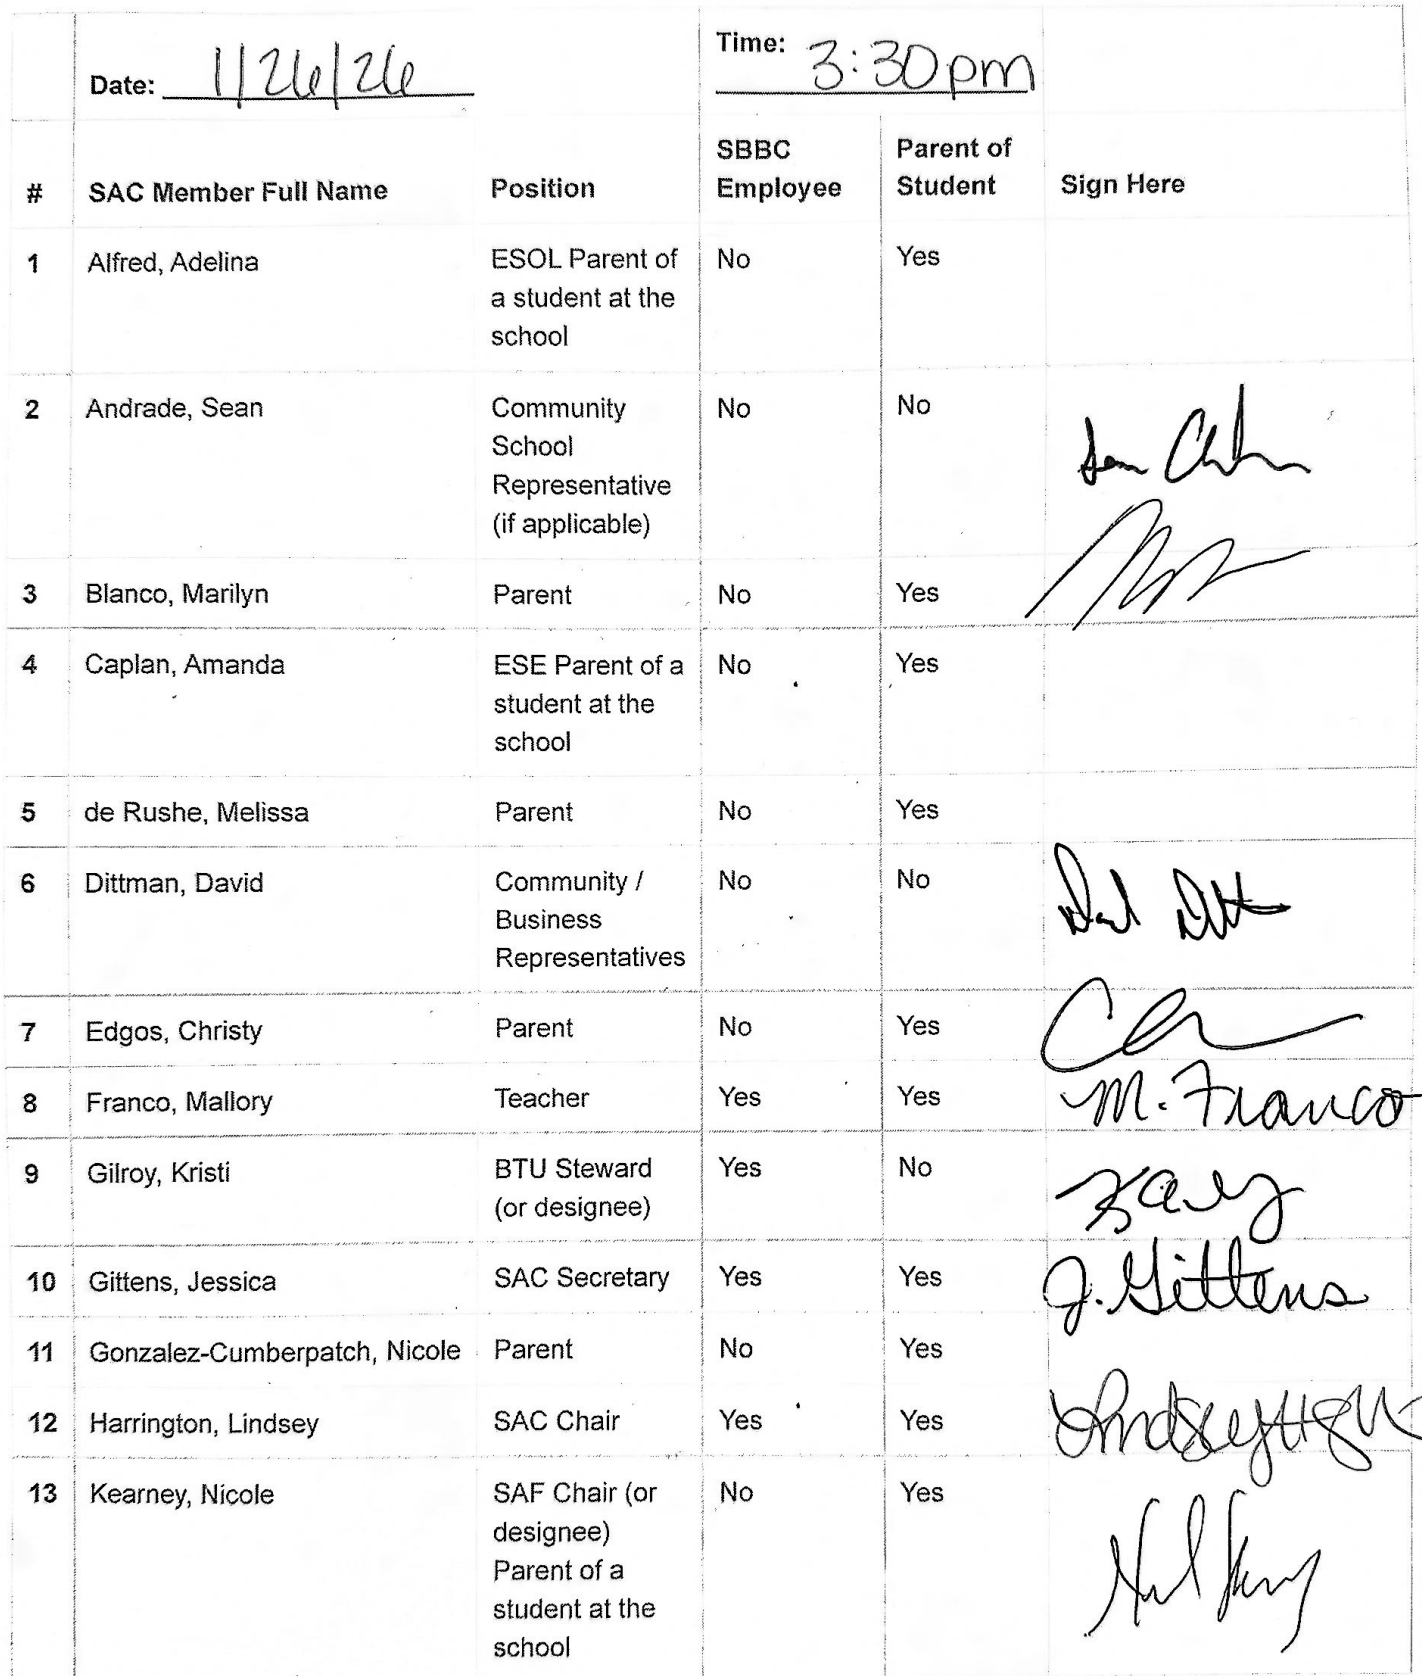 Date: 1/26/26 Time: 3:30pm
# SAC Member Full Name Position SBBC Employee Parent of Student Sign Here
1 Alfred, Adelina ESOL Parent of No Yes
a student at the
school
2 Andrade, Sean Community No No
School
Representative
(if applicable)
3 Blanco, Marilyn Parent No Yes
4 Caplan, Amanda ESE Parent of a No Yes
student at the
school
5 de Rushe, Melissa Parent No Yes
6 Dittman, David Community / No No
Business
Representatives
7 Edgos, Christy Parent No Yes
8 Franco, Mallory Teacher Yes Yes M. Franco
9 Gilroy, Kristi BTU Steward Yes No
(or designee)
10 Gittens, Jessica SAC Secretary Yes Yes J. Gittens
11 Gonzalez-Cumberpatch, Nicole Parent No Yes
12 Harrington, Lindsey SAC Chair Yes Yes
13 Kearney, Nicole SAF Chair (or No Yes
designee)
Parent of a
student at the
school